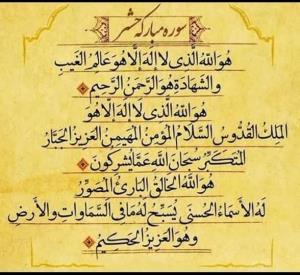 سوره مبارکه حشر
هُوَاللهُ الَّذِي لَا إِلَهَ إِلَّا هُوَ عَالِمُ الْغَيْبِ
وَالشَّهَادَةِ هُوَ الرَّحْمَنُ الرَّحِيمُ
هُوَاللهُ الَّذِي لَا إِلَهَ إِلَّا هُوَ
الْمَلِكُ الْقُدُّوسُ السَّلَامُ الْمُؤْمِنُ الْمُهَيْمِنُ الْعَزِيزُ الْجَبَّارُ
الْمُتَكَبِّرُ سُبْحَانَ اللهِ عَمَّا يُشْرِكُونَ
هُوَ اللهُ الْخَالِقُ الْبَارِئُ الْمُصَوِّرُ
لَهُ الْأَسْمَاءُ الْحُسْنَى يُسَبِّحُ لَهُ مَا فِي السَّمَاوَاتِ وَالْأَرْضِ
وَهُوَ الْعَزِيزُ الْحَكِيمُ